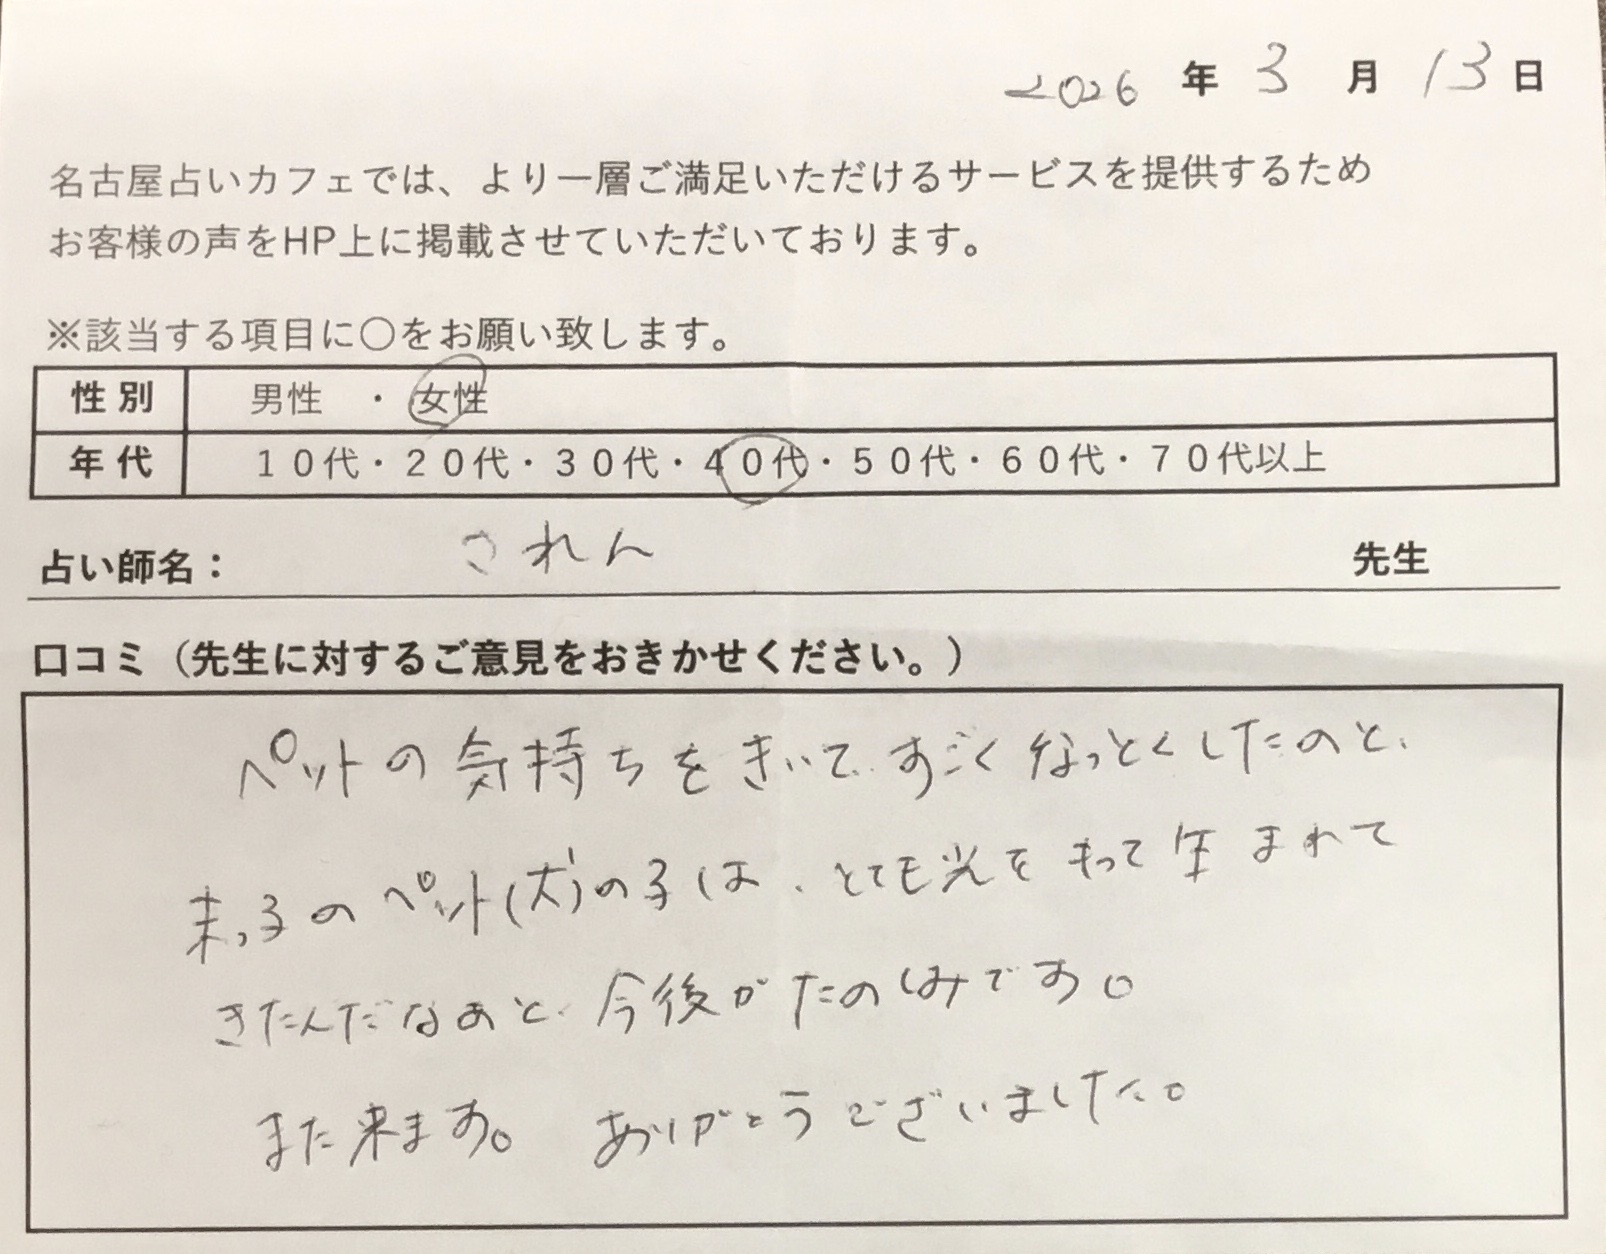 2026 年 3 月 13 日
名古屋占いカフェでは、より一層ご満足いただけるサービスを提供するため
お客様の声をHP上に掲載させていただいております。
※該当する項目に〇をお願い致します。
性別 男性 ・ 女性
年代 10代・20代・30代・40代・50代・60代・70代以上
占い師名： されん 先生
口コミ（先生に対するご意見をおきかせください。）
ペットの気持ちをきいて、すごくなっとくしたのと、
末っ子のペット(犬)の子は、とても光をもって生まれて
きたんだなぁと、今後がたのしみです。
また来ます。ありがとうございました。